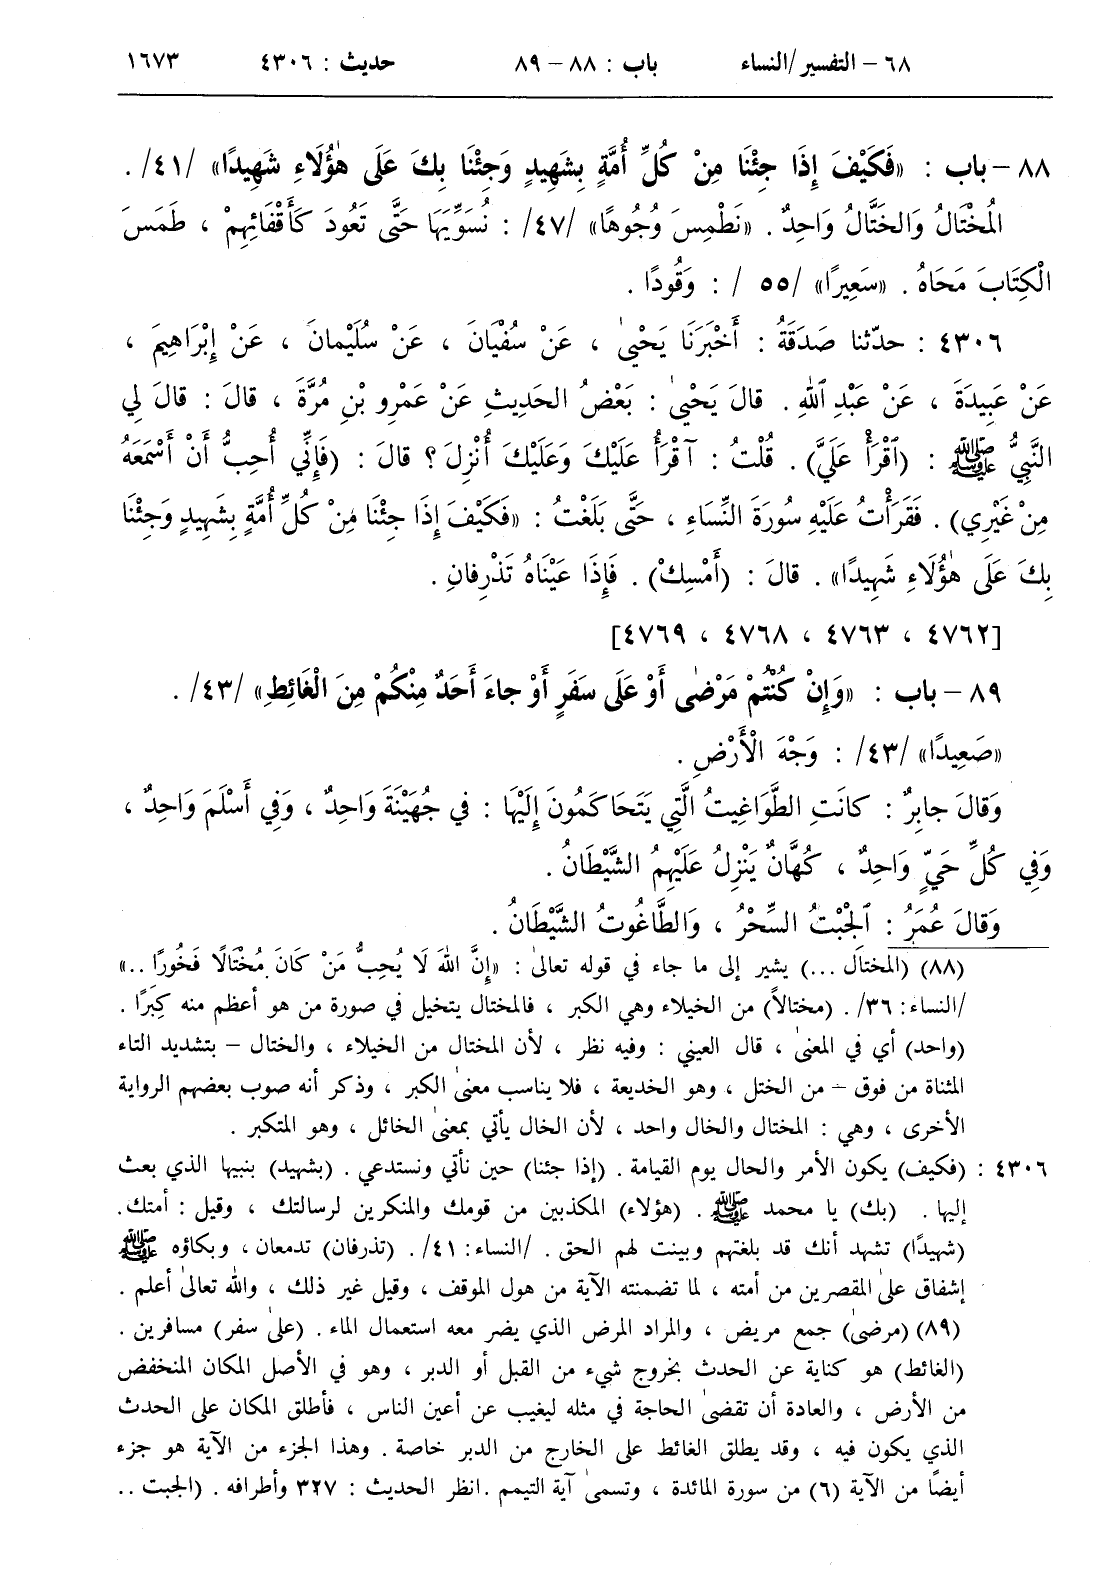 ٦٨ – التفسير/النساء باب : ٨٨ – ٨٩ حديث : ٤٣٠٦ ١٦٧٣
٨٨ – باب : «فَكَيْفَ إِذَا جِئْنَا مِنْ كُلِّ أُمَّةٍ بِشَهِيدٍ وَجِئْنَا بِكَ عَلَى هٰؤُلَاءِ شَهِيدًا» /٤١/ .
الْمُخْتَالُ وَالخَتَّالُ وَاحِدٌ . «نَطْمِسَ وُجُوهًا» /٤٧/ : نُسَوِّيَهَا حَتَّى تَعُودَ كَأَقْفَائِهِمْ ، طَمَسَ
الْكِتَابَ مَحَاهُ . «سَعِيرًا» /٥٥ / : وَقُودًا .
٤٣٠٦ : حدّثنا صَدَقَةُ : أَخْبَرَنَا يَحْيىٰ ، عَنْ سُفْيَانَ ، عَنْ سُلَيْمانَ ، عَنْ إِبْرَاهِيمَ ،
عَنْ عَبِيدَةَ ، عَنْ عَبْدِ ٱللهِ . قالَ يَحْيىٰ : بَعْضُ الحَدِيثِ عَنْ عَمْرِو بْنِ مُرَّةَ ، قالَ : قالَ لِي
النَّبِيُّ ﷺ : (ٱقْرَأْ عَلَيَّ) . قُلْتُ : آقْرَأُ عَلَيْكَ وَعَلَيْكَ أُنْزِلَ ؟ قالَ : (فَإِنِّي أُحِبُّ أَنْ أَسْمَعَهُ
مِنْ غَيْرِي) . فَقَرَأْتُ عَلَيْهِ سُورَةَ النِّسَاءِ ، حَتَّى بَلَغْتُ : «فَكَيْفَ إِذَا جِئْنَا مِنْ كُلِّ أُمَّةٍ بِشَهِيدٍ وَجِئْنَا
بِكَ عَلَى هٰؤُلَاءِ شَهِيدًا» . قالَ : (أَمْسِكْ) . فَإِذَا عَيْنَاهُ تَذْرِفانِ .
[٤٧٦٢ ، ٤٧٦٣ ، ٤٧٦٨ ، ٤٧٦٩]
٨٩ – باب : «وَإِنْ كُنْتُمْ مَرْضٰى أَوْ عَلَى سَفَرٍ أَوْ جاءَ أَحَدٌ مِنْكُمْ مِنَ الْغَائِطِ» /٤٣/ .
«صَعِيدًا» /٤٣/ : وَجْهَ الْأَرْضِ .
وَقالَ جابِرٌ : كانَتِ الطَّوَاغِيتُ الَّتِي يَتَحَاكَمُونَ إِلَيْهَا : في جُهَيْنَةَ وَاحِدٌ ، وَفِي أَسْلَمَ وَاحِدٌ ،
وَفِي كُلِّ حَيٍّ وَاحِدٌ ، كُهَّانٌ يَنْزِلُ عَلَيْهِمُ الشَّيْطَانُ .
وَقالَ عُمَرُ : ٱلْجِبْتُ السِّحْرُ ، وَالطَّاغُوتُ الشَّيْطَانُ .
(٨٨) (المختال ...) يشير إلى ما جاء في قوله تعالىٰ : «إِنَّ اللهَ لَا يُحِبُّ مَنْ كَانَ مُخْتَالًا فَخُورًا ..»
/النساء: ٣٦/. (مختالاً) من الخيلاء وهي الكبر ، فالمختال يتخيل في صورة من هو أعظم منه كِبَرًا .
(واحد) أي في المعنىٰ ، قال العيني : وفيه نظر ، لأن المختال من الخيلاء ، والختال – بتشديد التاء
المثناة من فوق – من الختل ، وهو الخديعة ، فلا يناسب معنىٰ الكبر ، وذكر أنه صوب بعضهم الرواية
الأخرى ، وهي : المختال والخال واحد ، لأن الخال يأتي بمعنىٰ الخائل ، وهو المتكبر .
٤٣٠٦ : (فكيف) يكون الأمر والحال يوم القيامة . (إذا جئنا) حين نأتي ونستدعي . (بشهيد) بنبيها الذي بعث
إليها . (بك) يا محمد ﷺ . (هؤلاء) المكذبين من قومك والمنكرين لرسالتك ، وقيل : أمتك.
(شهيدًا) تشهد أنك قد بلغتهم وبينت لهم الحق . /النساء: ٤١/. (تذرفان) تدمعان ، وبكاؤه ﷺ
إشفاق علىٰ المقصرين من أمته ، لما تضمنته الآية من هول الموقف ، وقيل غير ذلك ، والله تعالىٰ أعلم .
(٨٩) (مرضىٰ) جمع مريض ، والمراد المرض الذي يضر معه استعمال الماء . (علىٰ سفر) مسافرين .
(الغائط) هو كناية عن الحدث بخروج شيء من القبل أو الدبر ، وهو في الأصل المكان المنخفض
من الأرض ، والعادة أن تقضىٰ الحاجة في مثله ليغيب عن أعين الناس ، فأطلق المكان على الحدث
الذي يكون فيه ، وقد يطلق الغائط على الخارج من الدبر خاصة . وهذا الجزء من الآية هو جزء
أيضًا من الآية (٦) من سورة المائدة ، وتسمىٰ آية التيمم .انظر الحديث : ٣٢٧ وأطرافه . (الجبت ..